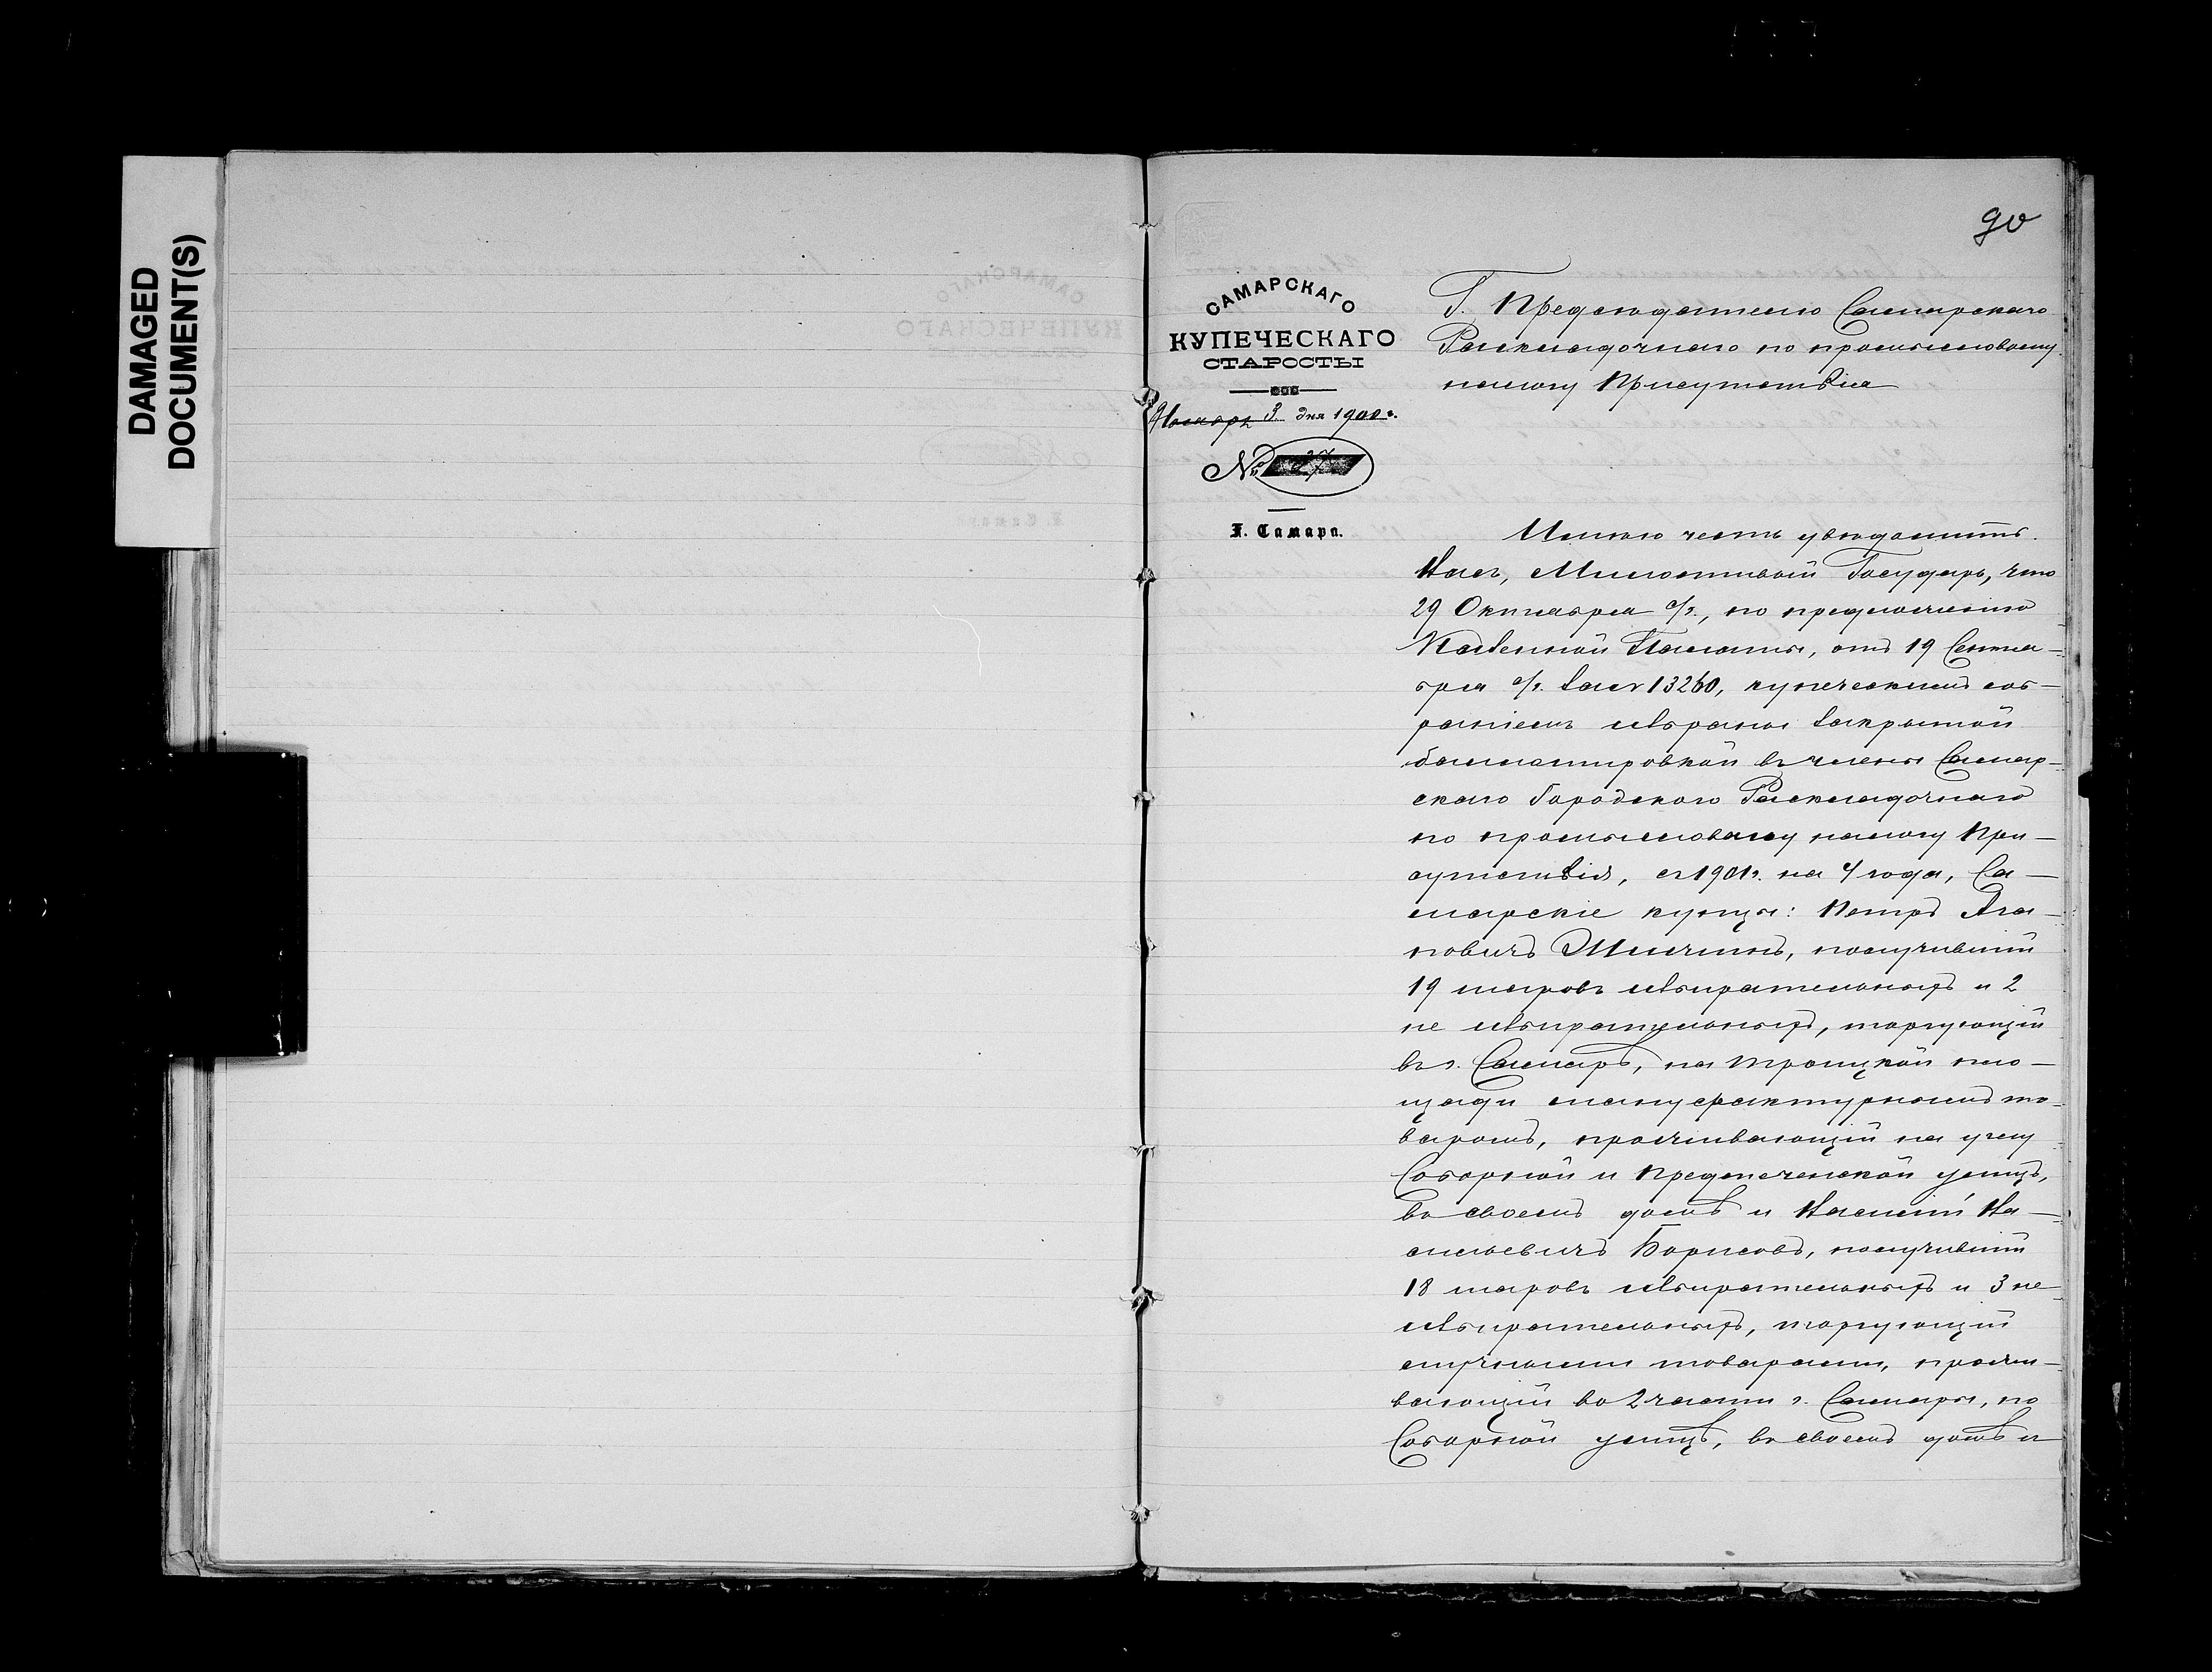 DAMAGED
DOCUMENT(S)
90
САМАРСКАГО
КУПЕЧЕСКАГО
СТАРОСТЫ
Ноября 3 дня 1900 г.
№ 37
Г. Самара.
Г. Предсѣдателю Самарскаго
Раскладочнаго по промысловому
налогу Присутствія
Имѣю честь увѣдомить
Васъ, Милостивый Государь, что
29 Октября с/г., по предложенію
Казенной Палаты, отъ 19 Сентя-
бря с/г. за № 13260, купеческимъ соб-
раніемъ избраны закрытой
баллотировкой въ члены Самар-
скаго Городского Раскладочнаго
по промысловому налогу При-
сутствія, съ 1901 г. на 4 года, Са-
марскіе купцы: Петръ Ага-
повичъ, получившій
19 шаровъ избирательныхъ и 2
не избирательныхъ, торгующій
въ г. Самарѣ, на Троицкой пло-
щади мануфактурнымъ то-
варомъ, проживающій на углу
Соборной и Предтеченской улицъ,
въ своемъ домѣ и Василій Ва-
сильевичъ Борисовъ, получившій
18 шаровъ избирательныхъ и 3 не-
избирательныхъ, торгующій
товарами, прожи-
вающій во 2 части г. Самары, по
Соборной улицѣ, въ своемъ домѣ и